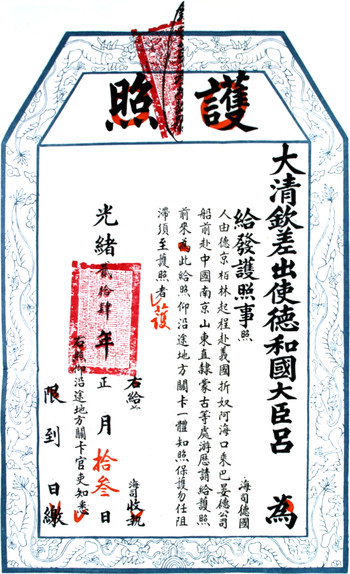 護照
大清欽差出使德和國大臣呂 為
給發護照事照 海司德國
人由德京栢林起程赴義國折奴阿海口乘巴晏德公司
船前赴中國南京山東直隸蒙古等處游歷請給護照
前來為此給照仰沿途地方關卡一體知照保護勿任阻
滯須至護照者
護
右給 海司收執
光緒貳拾肆年正月拾叁日
右照仰沿途地方關卡官吏知悉
限到 日繳